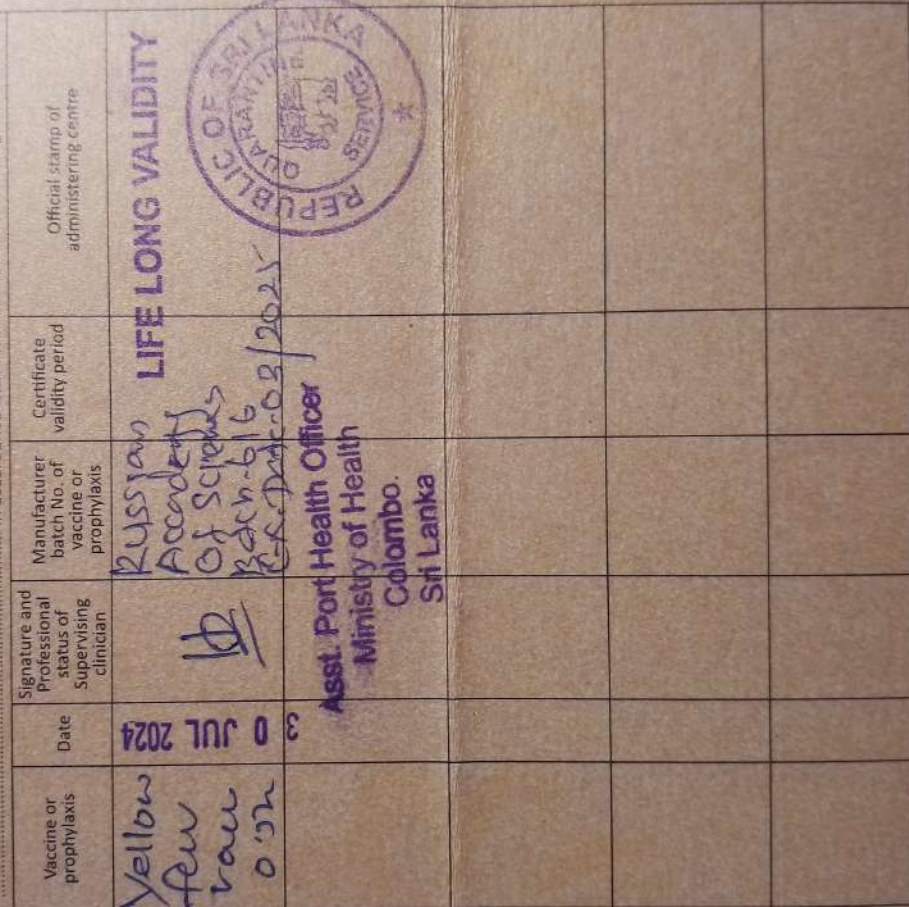 Vaccine or
prophylaxis
Date
Signature and
Professional
status of
Supervising
clinician
Manufacturer
batch No. of
vaccine or
prophylaxis
Certificate
validity period
Official stamp of
administering centre
Yellow
3 0 JUL 2024
Russian
Accademy
Of Sciences
Batch-616
Ex. Date-03/2025
LIFE LONG VALIDITY
REPUBLIC OF SRI LANKA
QUARANTINE
SERVICE
Asst. Port Health Officer
Ministry of Health
Colombo.
Sri Lanka